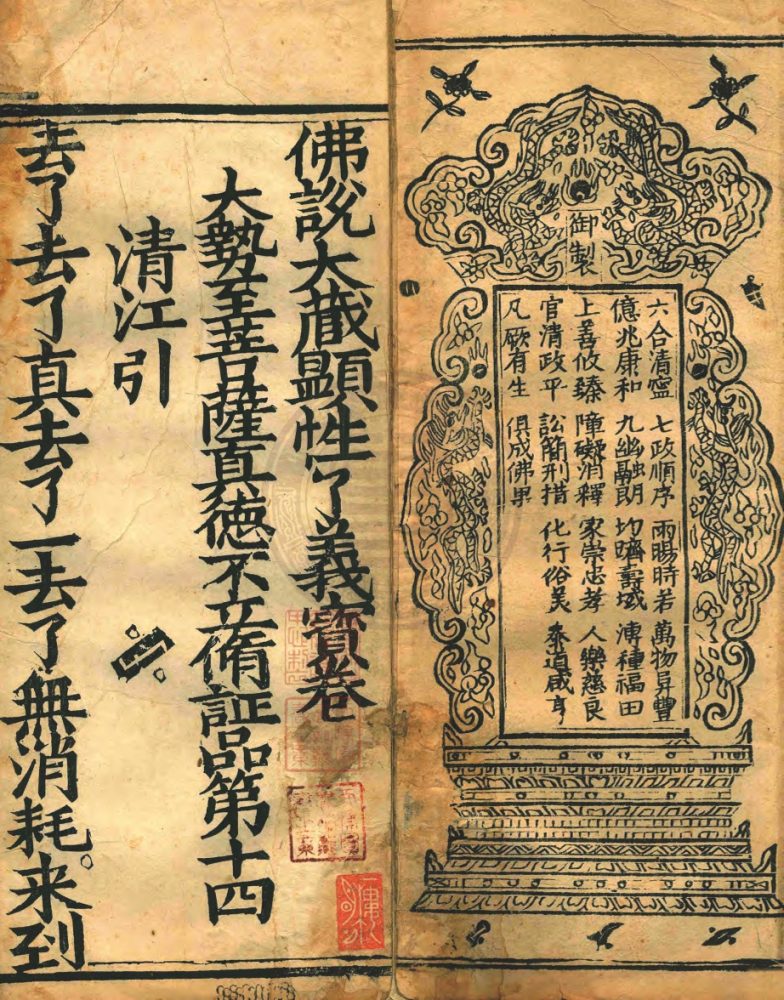 御製
六合清寧 七政順序 雨暘時若 萬物阜豐
億兆康和 九幽融朗 均躋壽域 溥種福田
上善攸臻 障礙消釋 家崇忠孝 人樂慈良
官清政平 訟簡刑措 化行俗美 泰道咸亨
凡厥有生 俱成佛果
佛說大藏顯性了義寶卷
大勢至菩薩真德不立脩証品第十四
清江引
去了去了真去了一去了無消耗。来到